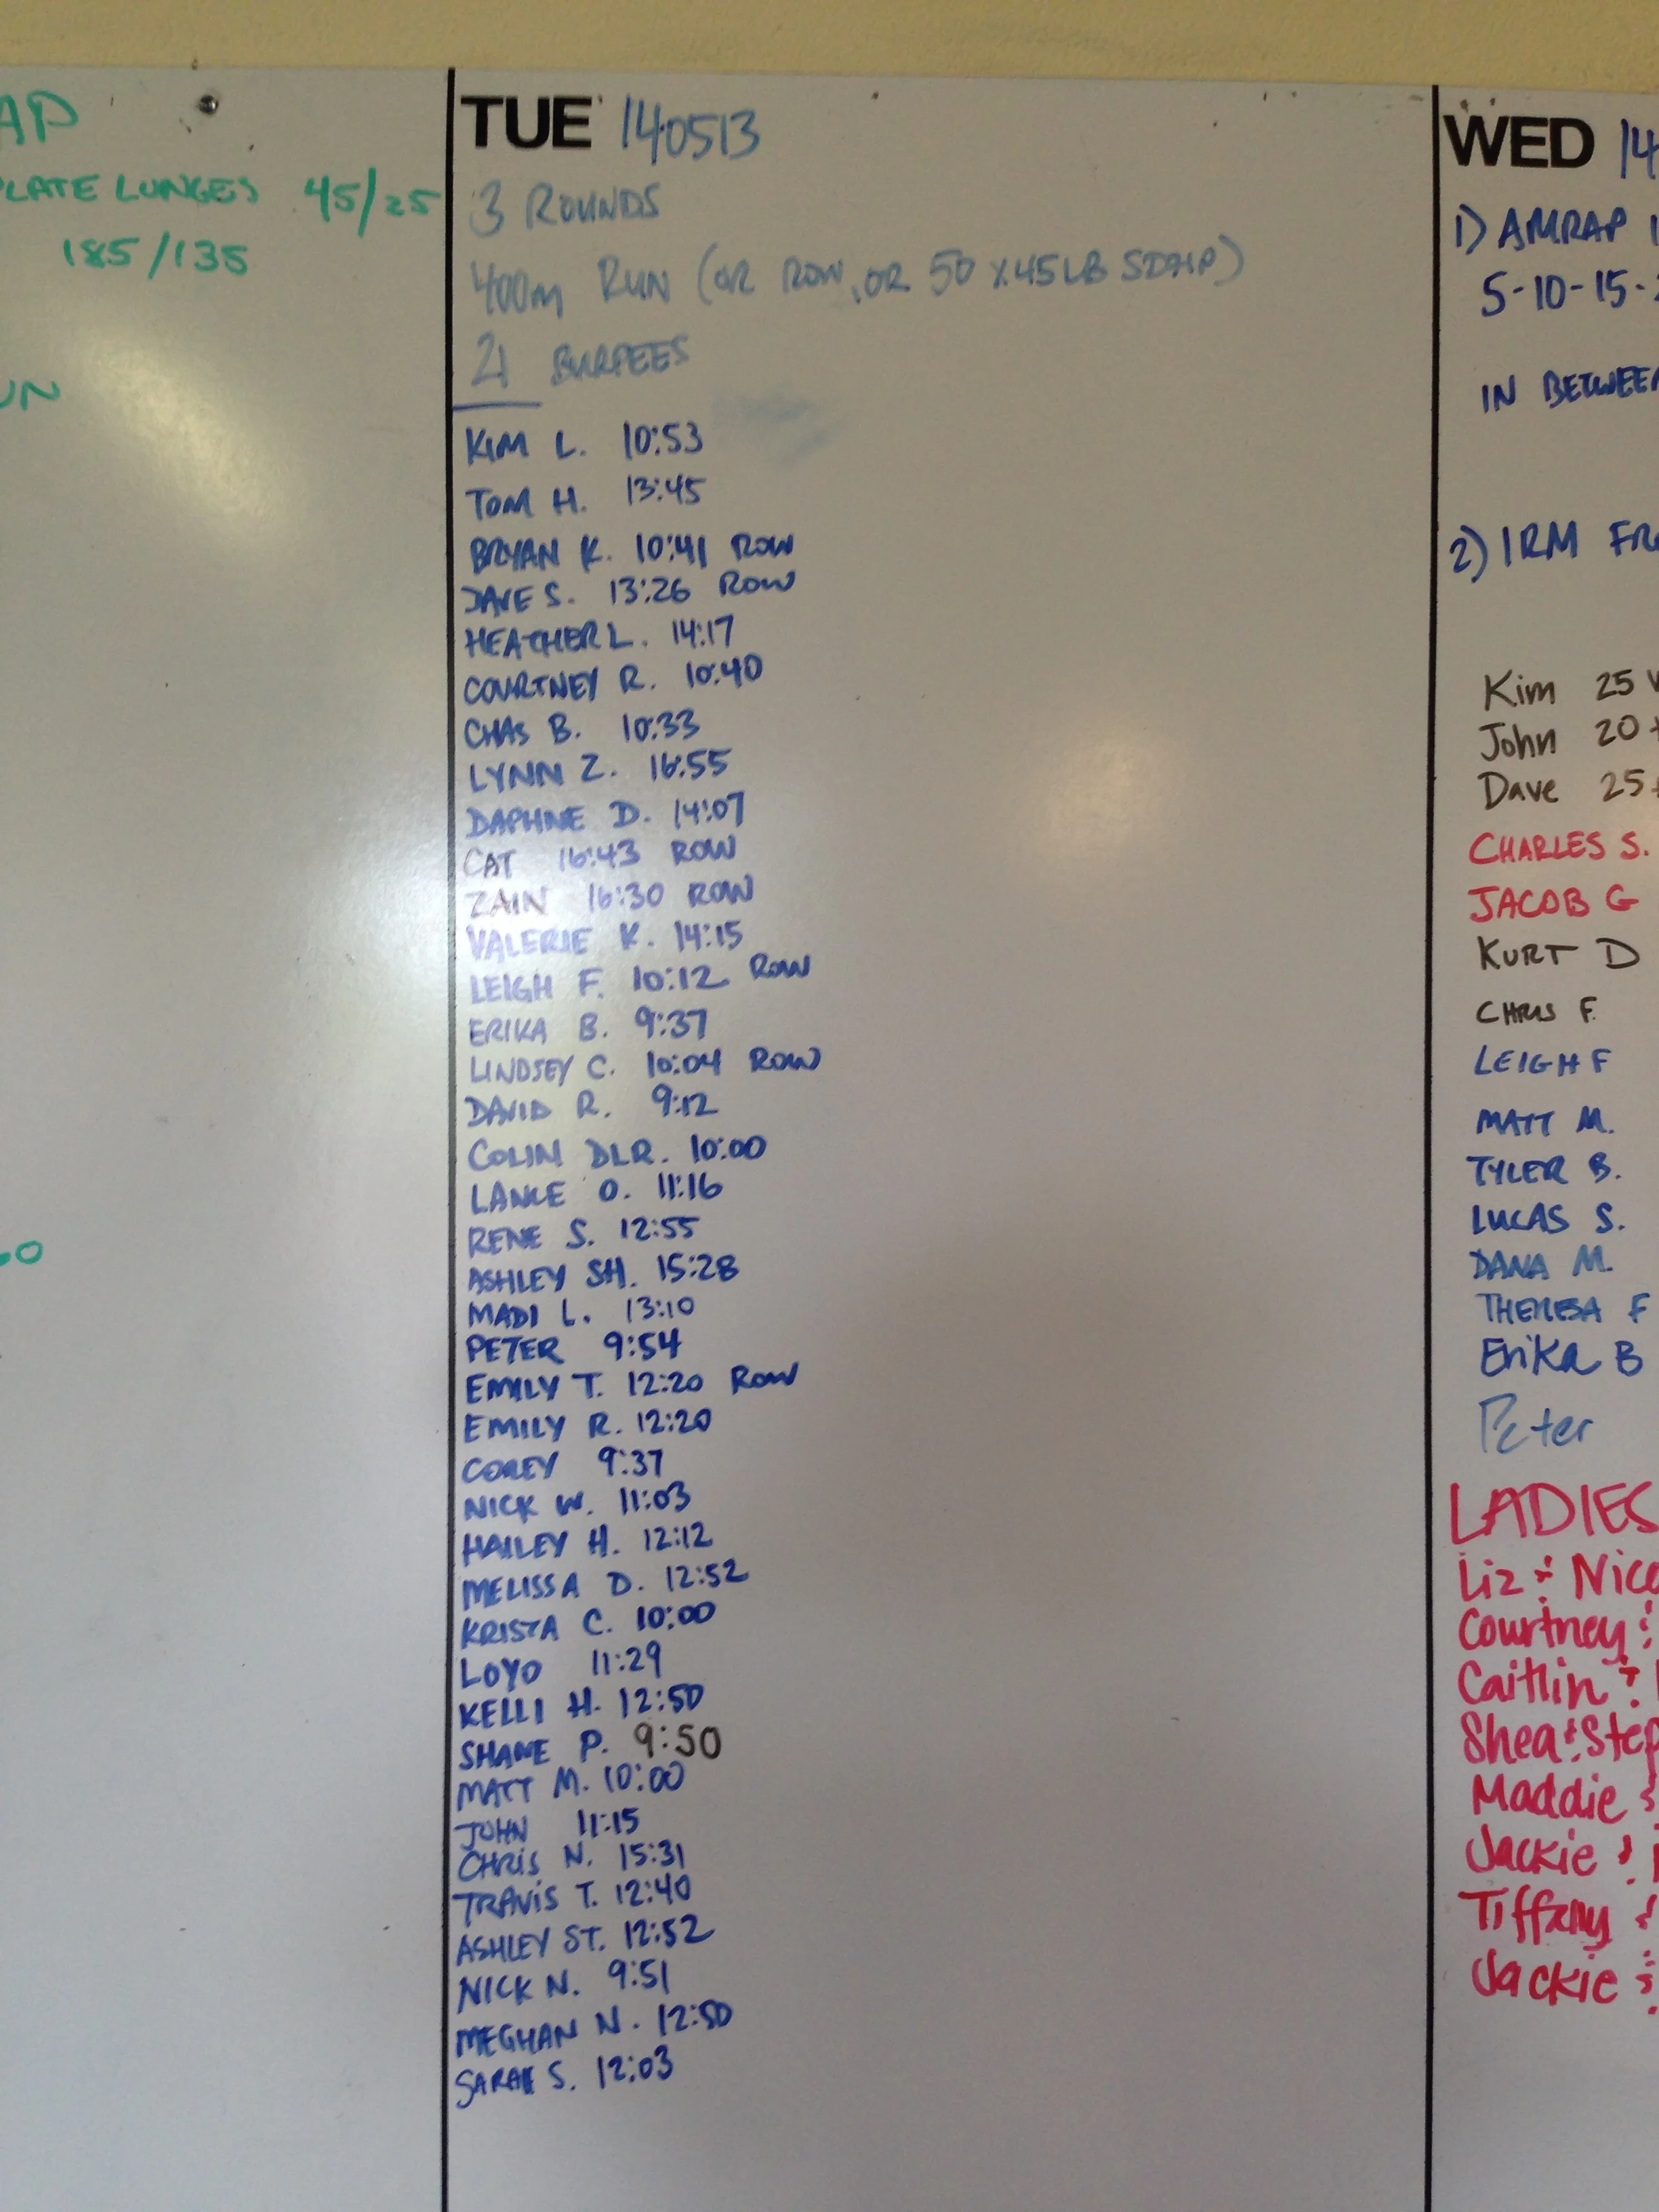 AP
PLATE LUNGES 45/25
185/135
UN
TUE 140513
3 ROUNDS
400m RUN (OR ROW, OR 50 X 45LB SDHP)
21 BURPEES
KIM L. 10:53
TOM H. 13:45
BRYAN K. 10:41 ROW
DAVE S. 13:26 ROW
HEATHER L. 14:17
COURTNEY R. 10:40
CHAS B. 10:33
LYNN Z. 16:55
DAPHNE D. 14:07
CAT 16:43 ROW
ZAIN 16:30 ROW
VALERIE K. 14:15
LEIGH F. 10:12 ROW
ERIKA B. 9:37
LINDSEY C. 10:04 ROW
DAVID R. 9:12
COLIN DLR. 10:00
LANCE O. 11:16
RENE S. 12:55
ASHLEY SH. 15:28
MADI L. 13:10
PETER 9:54
EMILY T. 12:20 ROW
EMILY R. 12:20
COREY 9:37
NICK W. 11:03
HAILEY H. 12:12
MELISSA D. 12:52
KRISTA C. 10:00
LOYO 11:29
KELLI H. 12:50
SHANE P. 9:50
MATT M. 10:00
JOHN 11:15
CHRIS N. 15:31
TRAVIS T. 12:40
ASHLEY ST. 12:52
NICK N. 9:51
MEGHAN N. 12:50
SARAH S. 12:03
WED 14
1) AMRAP 1
5-10-15-
IN BETWEEN
2) 1RM FR
Kim 25
John 20
Dave 25
CHARLES S.
JACOB G
KURT D
CHRIS F.
LEIGH F
MATT M.
TYLER B.
LUCAS S.
DANA M.
THERESA F
Erika B
Peter
LADIES
Liz & Nico
Courtney &
Caitlin &
Shea & Step
Maddie &
Jackie &
Tiffany &
Jackie &